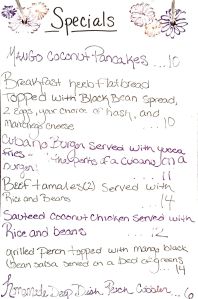 Specials
Mango Coconut Pancakes ... 10
Breakfast herb flatbread
Topped with Black Bean Spread,
2 eggs, your choice of hash, and
Manchego cheese ... 10
Cubano Burger served with yucca
fries - the perks of a Cubano in a
burger! ... 11
Beef tamales (2) Served with
Rice and Beans ... 14
Sauteed coconut chicken served with
Rice and beans ... 12
grilled Perch topped with mango black
bean salsa served on a bed of greens
... 14
Homemade Deep Dish Peach Cobbler ... 6